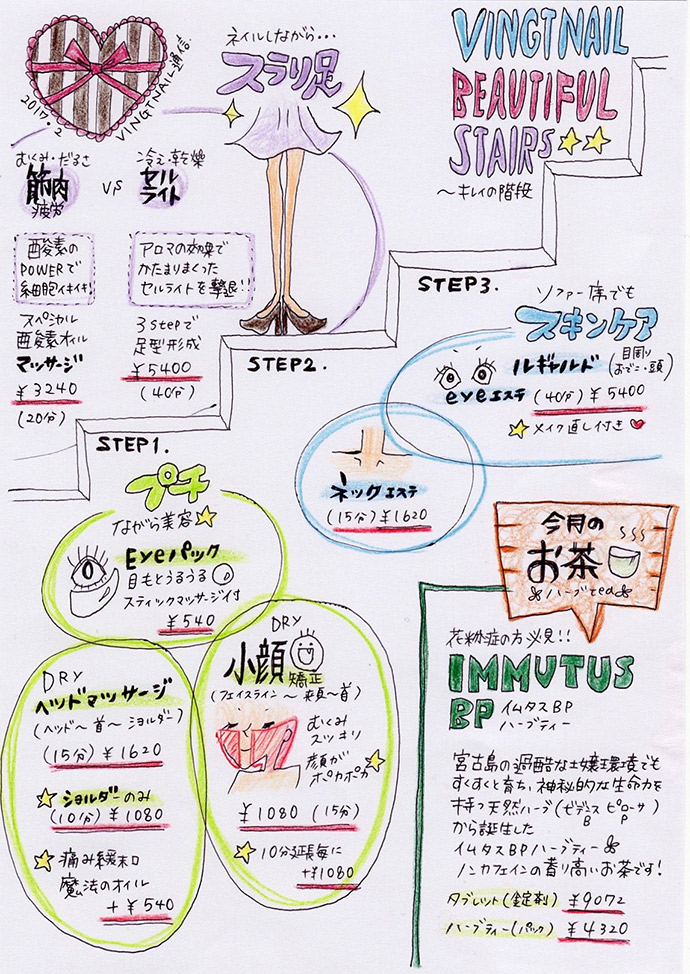 2017.2
VINGTNAIL通信.
ネイルしながら...
スラリ足
VINGTNAIL
BEAUTIFUL
STAIRS
～キレイの階段
むくみ・だるさ
筋肉
疲労
VS
冷え・乾燥
セル
ライト
酸素の
POWERで
細胞イキイキ!
スペシャル
酸素オイル
マッサージ
¥3240
(20分)
アロマの効果で
かたまりまくった
セルライトを撃退!!
3stepで
足型形成
¥5400
(40分)
STEP1.
STEP2.
STEP3.
ソファー席でも
スキンケア
ルギャルド(目周り
おでこ・頭)
eyeエステ (40分) ¥5400
メイク直し付き
ネックエステ
(15分)¥1620
プチ
ながら美容
Eyeパック
目もとうるうる
スティックマッサージ付
¥540
DRY
ヘッドマッサージ
(ヘッド～首～ショルダー)
(15分)¥1620
ショルダーのみ
(10分)¥1080
痛み緩和
魔法のオイル
+¥540
DRY
小顔矯正
(フェイスライン～頬～首)
むくみ
スッキリ
顔が
ポカポカ
¥1080 (15分)
10分延長毎に
+¥1080
今月の
お茶
ハーブtea
花粉症の方必見!!
IMMUTUS
BP イムタスBP
ハーブティー
宮古島の過酷な土壌環境でも
すくすくと育ち、神秘的な生命力を
持つ天然ハーブ(ビデンス ピローサ)
B P
から誕生した
イムタスBPハーブティー
ノンカフェインの香り高いお茶です!
タブレット(錠剤) ¥9072
ハーブティー(パック) ¥4320